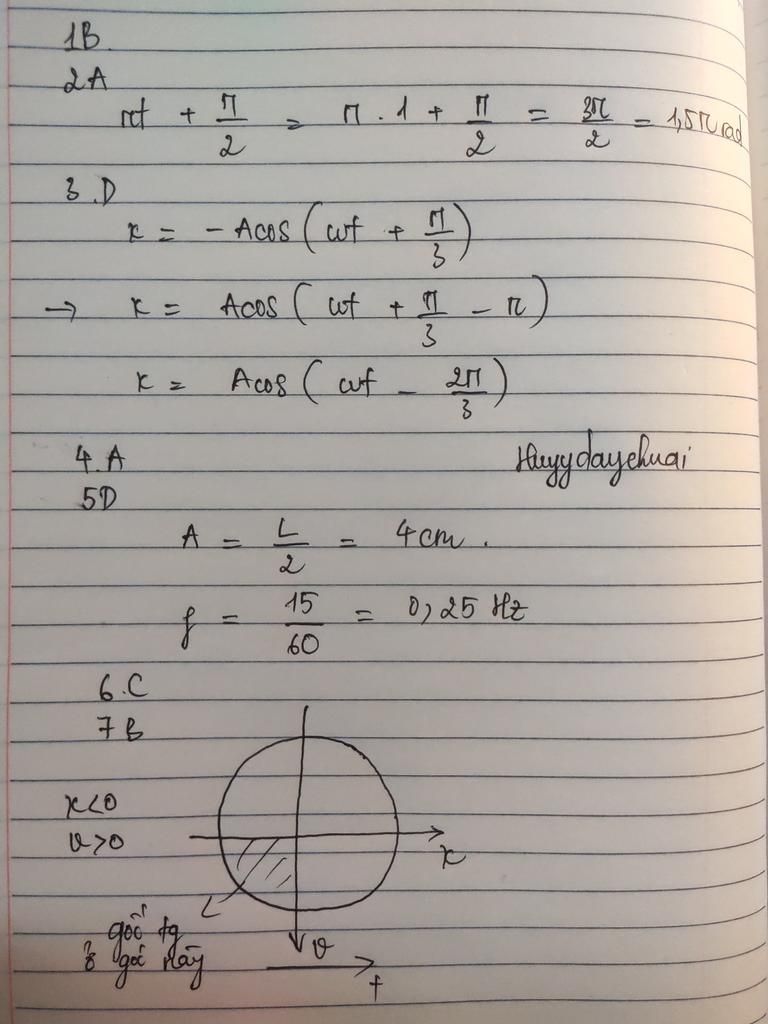 1B.
2A
πt + π/2 = π . 1 + π/2 = 3π/2 = 1,5π rad
3.D
x = - Acos(ωt + π/3)
→ x = Acos(ωt + π/3 - π)
x = Acos(ωt - 2π/3)
4.A
Huyydayehuai
5D
A = L/2 = 4cm.
f = 15/60 = 0,25 Hz
6.C
7B
x<0
v>0
x
gốc tg
ở góc này
v
t